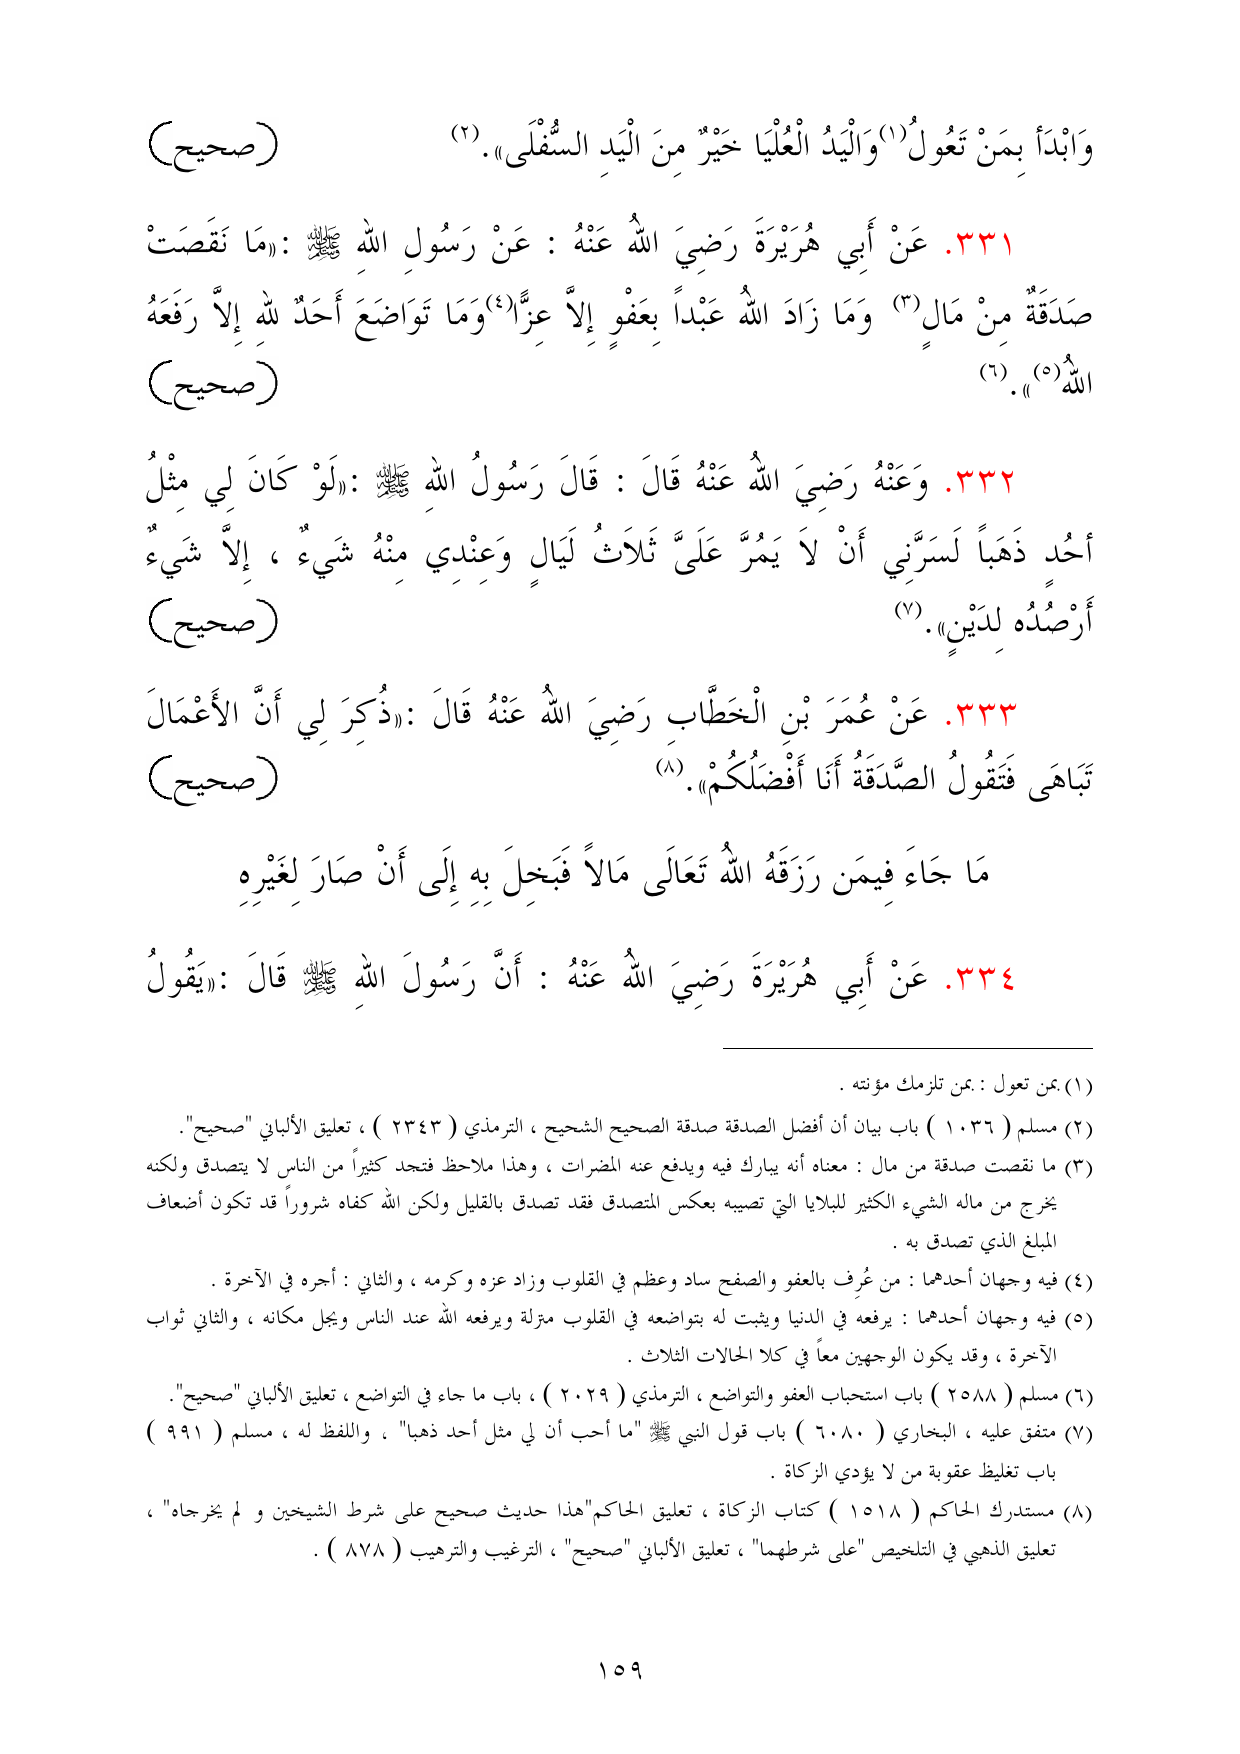 وَابْدَأْ بِمَنْ تَعُولُ(١)وَالْيَدُ الْعُلْيَا خَيْرٌ مِنَ الْيَدِ السُّفْلَى».(٢) (صحيح)
٣٣١. عَنْ أَبِي هُرَيْرَةَ رَضِيَ اللهُ عَنْهُ : عَنْ رَسُولِ اللهِ ﷺ :«مَا نَقَصَتْ
صَدَقَةٌ مِنْ مَالٍ(٣) وَمَا زَادَ اللهُ عَبْداً بِعَفْوٍ إِلاَّ عِزًّا(٤)وَمَا تَوَاضَعَ أَحَدٌ للهِ إِلاَّ رَفَعَهُ
اللهُ(٥)».(٦) (صحيح)
٣٣٢. وَعَنْهُ رَضِيَ اللهُ عَنْهُ قَالَ : قَالَ رَسُولُ اللهِ ﷺ :«لَوْ كَانَ لِي مِثْلُ
أُحُدٍ ذَهَباً لَسَرَّنِي أَنْ لاَ يَمُرَّ عَلَىَّ ثَلاَثُ لَيَالٍ وَعِنْدِي مِنْهُ شَيءٌ ، إِلاَّ شَيءٌ
أَرْصُدُه لِدَيْنٍ».(٧) (صحيح)
٣٣٣. عَنْ عُمَرَ بْنِ الْخَطَّابِ رَضِيَ اللهُ عَنْهُ قَالَ :«ذُكِرَ لِي أَنَّ الأَعْمَالَ
تَبَاهَى فَتَقُولُ الصَّدَقَةُ أَنَا أَفْضَلُكُمْ».(٨) (صحيح)
مَا جَاءَ فِيمَن رَزَقَهُ اللهُ تَعَالَى مَالاً فَبَخِلَ بِهِ إِلَى أَنْ صَارَ لِغَيْرِهِ
٣٣٤. عَنْ أَبِي هُرَيْرَةَ رَضِيَ اللهُ عَنْهُ : أَنَّ رَسُولَ اللهِ ﷺ قَالَ :«يَقُولُ
(١) بمن تعول : بمن تلزمك مؤنته .
(٢) مسلم ( ١٠٣٦ ) باب بيان أن أفضل الصدقة صدقة الصحيح الشحيح ، الترمذي ( ٢٣٤٣ ) ، تعليق الألباني "صحيح".
(٣) ما نقصت صدقة من مال : معناه أنه يبارك فيه ويدفع عنه المضرات ، وهذا ملاحظ فتجد كثيراً من الناس لا يتصدق ولكنه
يخرج من ماله الشيء الكثير للبلايا التي تصيبه بعكس المتصدق فقد تصدق بالقليل ولكن الله كفاه شروراً قد تكون أضعاف
المبلغ الذي تصدق به .
(٤) فيه وجهان أحدهما : من عُرِف بالعفو والصفح ساد وعظم في القلوب وزاد عزه وكرمه ، والثاني : أجره في الآخرة .
(٥) فيه وجهان أحدهما : يرفعه في الدنيا ويثبت له بتواضعه في القلوب منزلة ويرفعه الله عند الناس ويجل مكانه ، والثاني ثواب
الآخرة ، وقد يكون الوجهين معاً في كلا الحالات الثلاث .
(٦) مسلم ( ٢٥٨٨ ) باب استحباب العفو والتواضع ، الترمذي ( ٢٠٢٩ ) ، باب ما جاء في التواضع ، تعليق الألباني "صحيح".
(٧) متفق عليه ، البخاري ( ٦٠٨٠ ) باب قول النبي ﷺ "ما أحب أن لي مثل أحد ذهبا" ، واللفظ له ، مسلم ( ٩٩١ )
باب تغليظ عقوبة من لا يؤدي الزكاة .
(٨) مستدرك الحاكم ( ١٥١٨ ) كتاب الزكاة ، تعليق الحاكم"هذا حديث صحيح على شرط الشيخين و لم يخرجاه" ،
تعليق الذهبي في التلخيص "على شرطهما" ، تعليق الألباني "صحيح" ، الترغيب والترهيب ( ٨٧٨ ) .
١٥٩